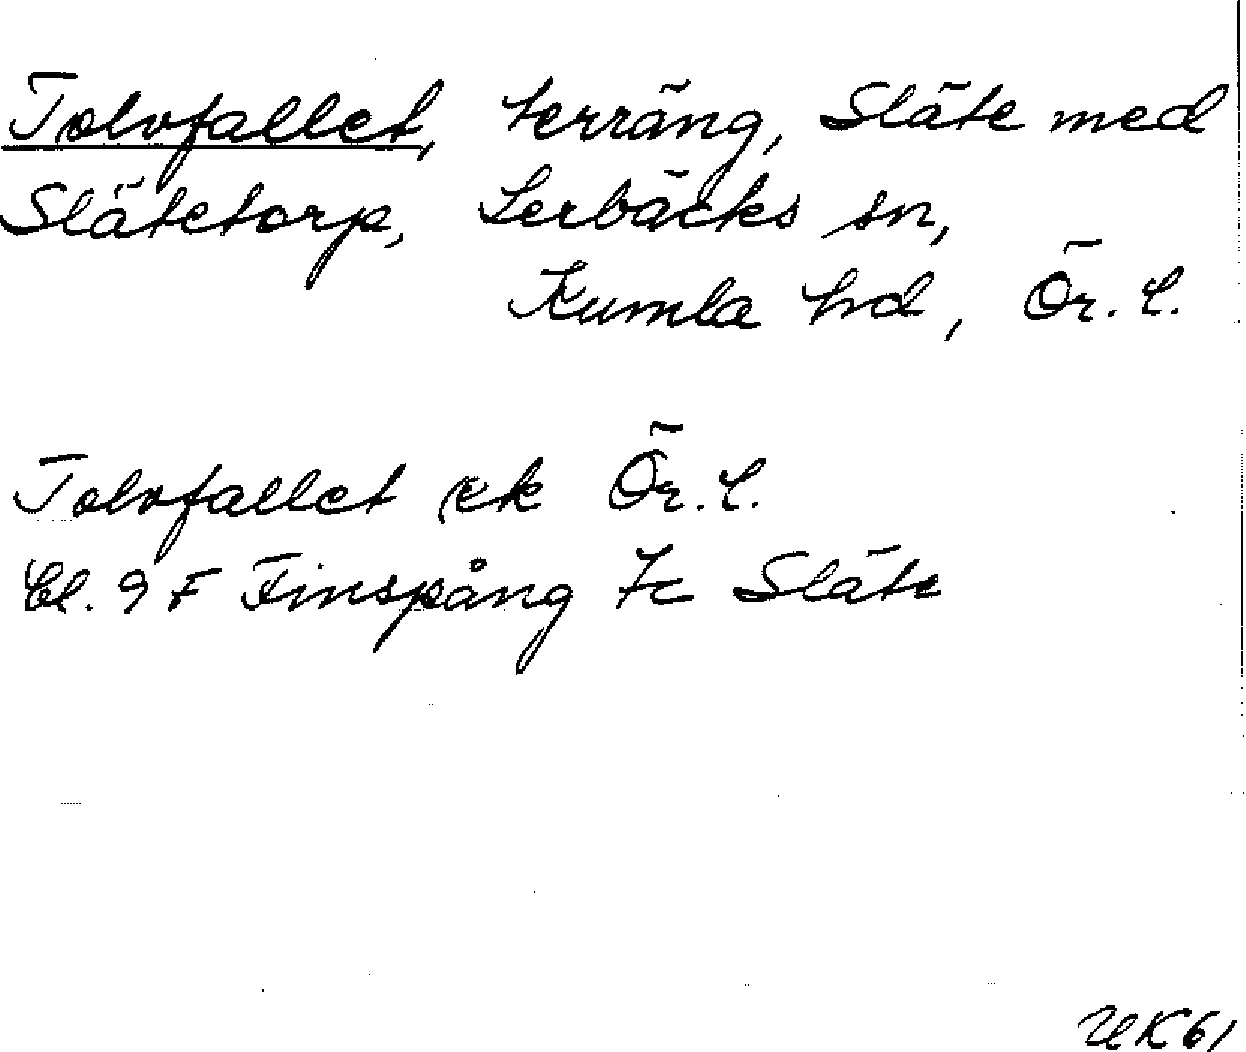 Tolvfallet, terräng, Släte med
Slätetorp, Lerbäcks sn,
Kumla hd, Ör. l.
Tolvfallet ek Ör. l.
bl. 9 F Finspång 7c Släte
UK61